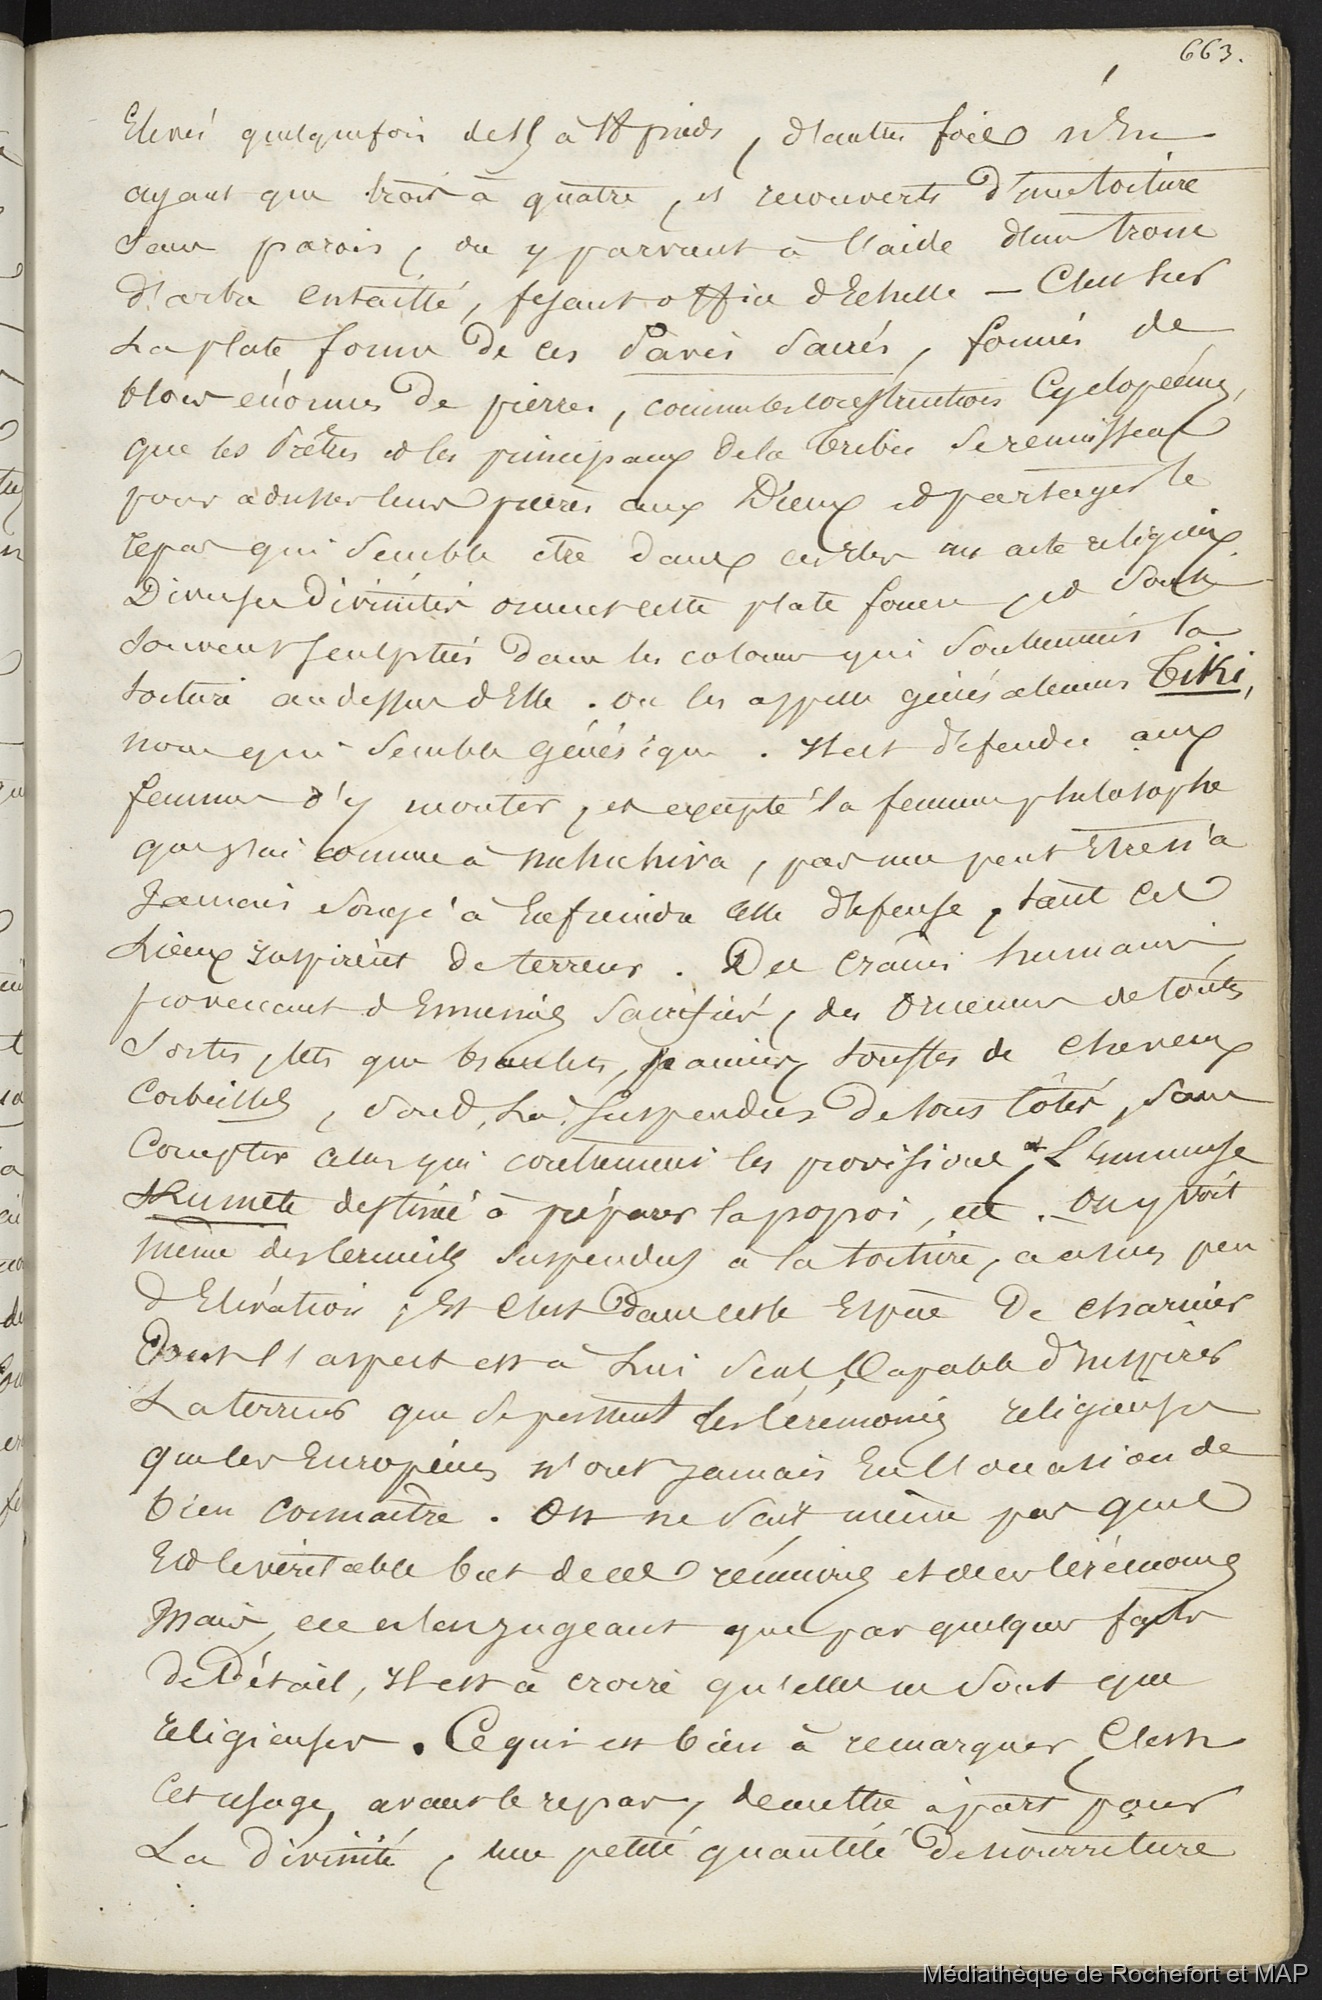 663.
Elevés quelquefois de 15 à 18 pieds, d'autres fois n'En
ayant que trois à quatre, et recouverts d'une toiture
sans parois, on y parvient à l'aide d'un tronc
d'arbre entaillé, fesant office d'Echelle — C'est sur
La plate forme de ces Pavés Sacrés, formés de
blocs énormes De pierres, comme les constructions Cyclopéénnes,
que les Prêtres et les principaux de la tribu se reunissent
pour adresser leurs prières aux Dieux et partager le
repas qui semble être dans ces Iles un acte religieux.
Diverses Divinités ornent cette plate forme, et sont
souvent sculptées Dans les colonnes qui soutiennent la
toiture au dessus d'Elle. On les appelle généralement Tiki,
nom qui semble générique. Il est défendu aux
femmes d'y monter, et excepté la femme philosophe
que j'ai connue à nuhuhiva, pas une peut Etre n'a
Jamais songé à Enfreindre cette défense, tant ces
Lieux inspirent de terreur. Des crânes humains
provenant d'Ennemis sacrifiés, des ornemens de toutes
sortes, tels que bracelets, paniers, touffes de cheveux
Corbeilles, sont Là suspendus De tous côtés, sans
Compter celles qui contiennent les provisions et L'immense
Kumete destiné à préparer la popoi, etc. On y voit
même des cercueils suspendus à la toiture, à assez peu
d'Elévation, Et c'est Dans cette Espèce De charnier
Dont l'aspect est à Lui seul Capable d'Inspirer
La terreur que se passent les Cérémonies religieuses
que les Européens n'ont Jamais Eu l'occasion de
bien connaître. On ne sait même pas quel
Est le véritable but de ces réunions et de ces Cérémonies
Mais, en n'en jugeant que par quelques faits
de Détail, Il est à croire qu'elles ne sont que
religieuses. Ce qui est bien à remarquer, C'est
Cet usage, avant le repas, de mettre à part pour
La divinité, une petite quantité De nourriture
Médiathèque de Rochefort et MAP